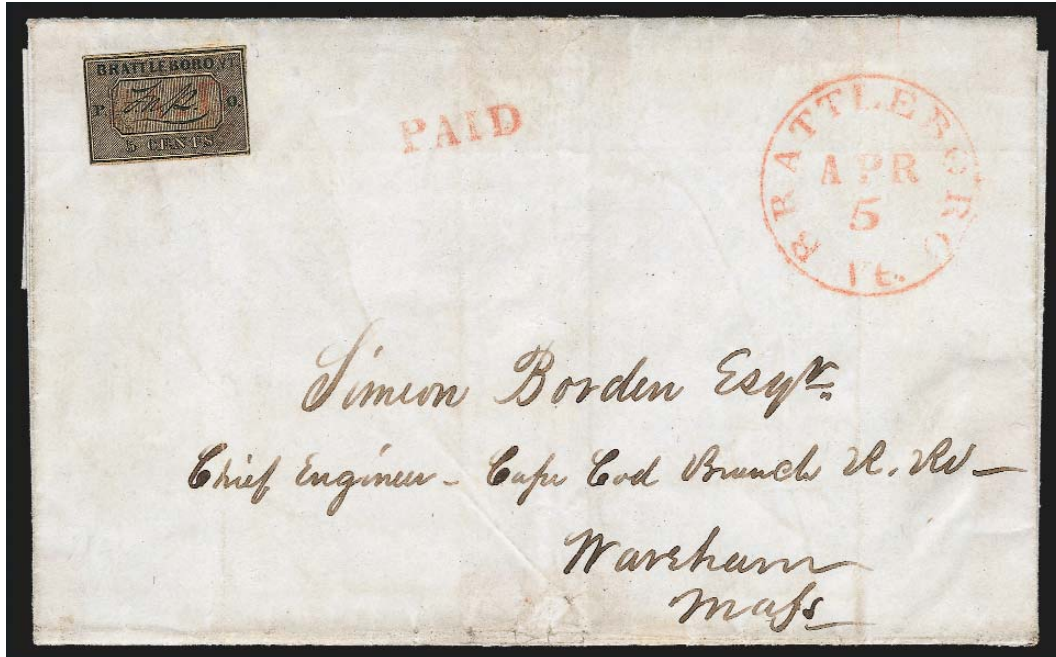 BRATTLEBORO, VT.
P. O.
5 CENTS.
PAID
BRATTLEBORO
APR
5
Vt.
Simeon Borden Esqr.
Chief Engineer - Cape Cod Branch R. Rd -
Wareham
Mass